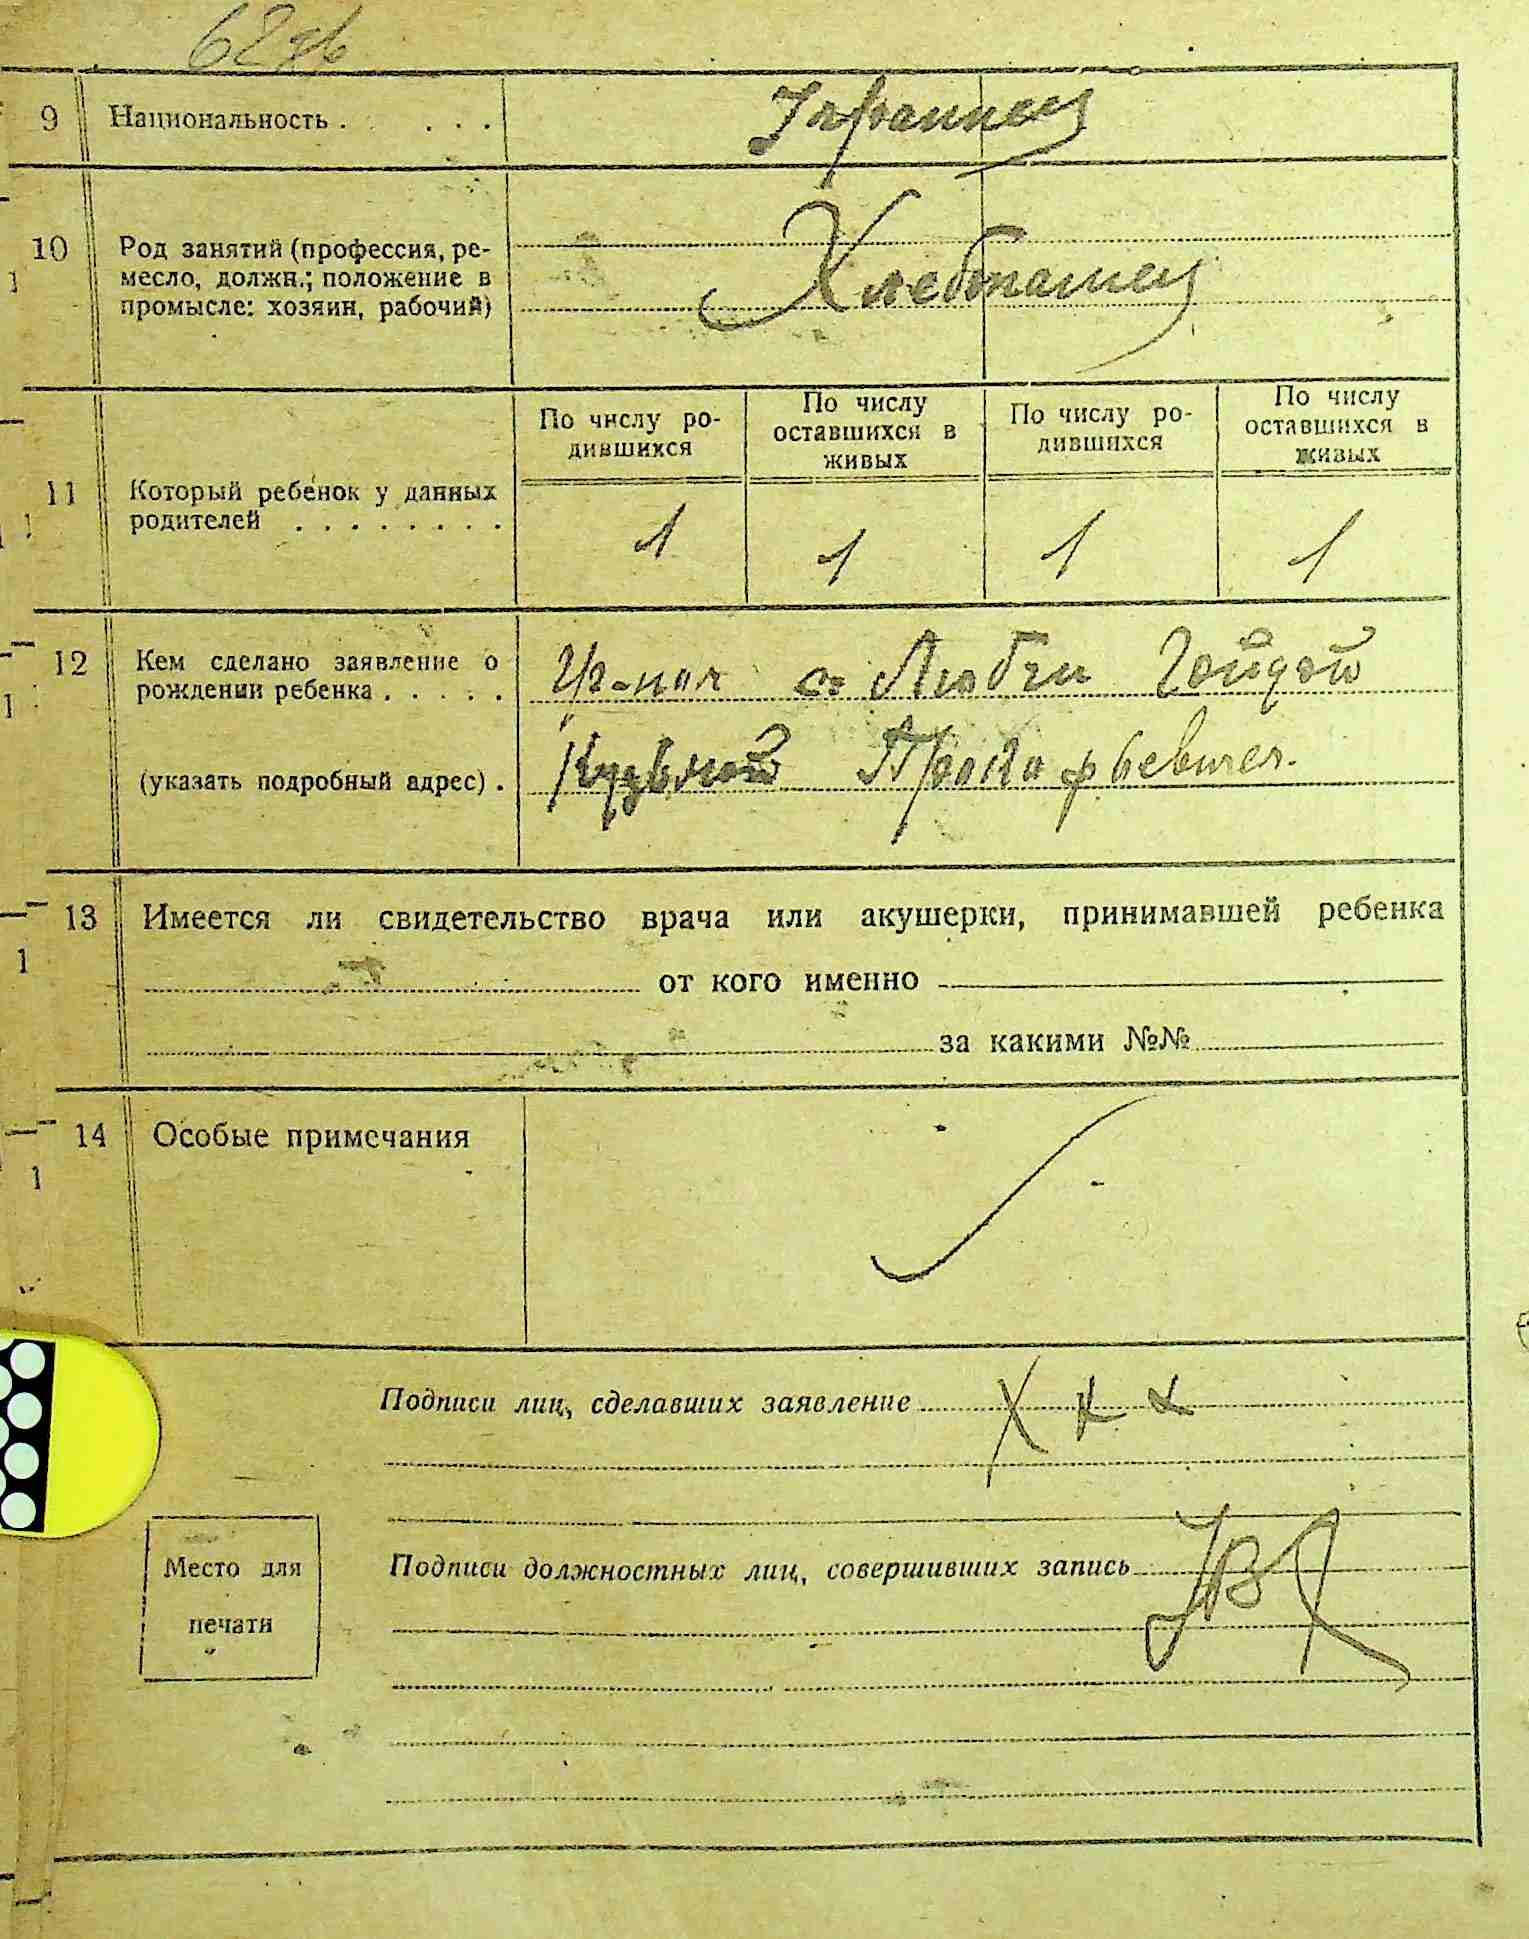 62 зв
9 Национальность . . . . Украинец
10 Род занятий (профессия, ре-
месло, должн.; положение в
промысле: хозяин, рабочий)
Хлебопашец
11 Который ребенок у данных
родителей . . . . . . . .
По числу ро-
дившихся
По числу
оставшихся в
живых
По числу ро-
дившихся
По числу
оставшихся в
живых
1 1 1 1
12 Кем сделано заявление о
рождении ребенка . . . . .
Гр-нин с. Гойдой
(указать подробный адрес) .
Кузьмой Прокофьевичем.
13 Имеется ли свидетельство врача или акушерки, принимавшей ребенка
от кого именно
за какими №№
14 Особые примечания
Подписи лиц, сделавших заявление
Место для
печати
Подписи должностных лиц, совершивших запись